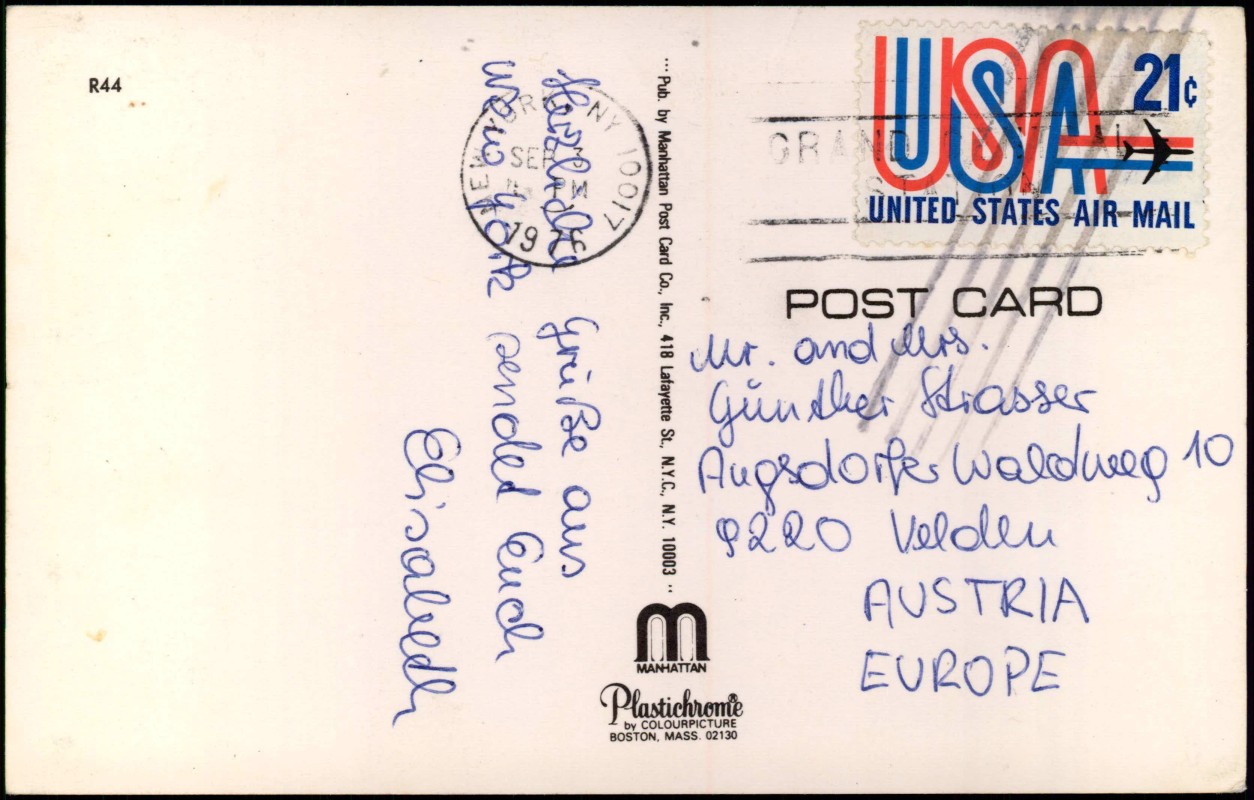 R44
Herzliche Grüße aus
New York sendet Euch
Elisabeth
NEW YORK, NY 10017
SEP
PM
197
... Pub. by Manhattan Post Card Co., Inc., 418 Lafayette St., N.Y.C., N.Y. 10003 ..
MANHATTAN
Plastichrome®
by COLOURPICTURE
BOSTON, MASS. 02130
USA 21¢
UNITED STATES AIR MAIL
GRAND CENTRAL
STATION
POST CARD
Mr. and Mrs.
Günther Strasser
Augsdorfer Waldweg 10
9220 Velden
AUSTRIA
EUROPE